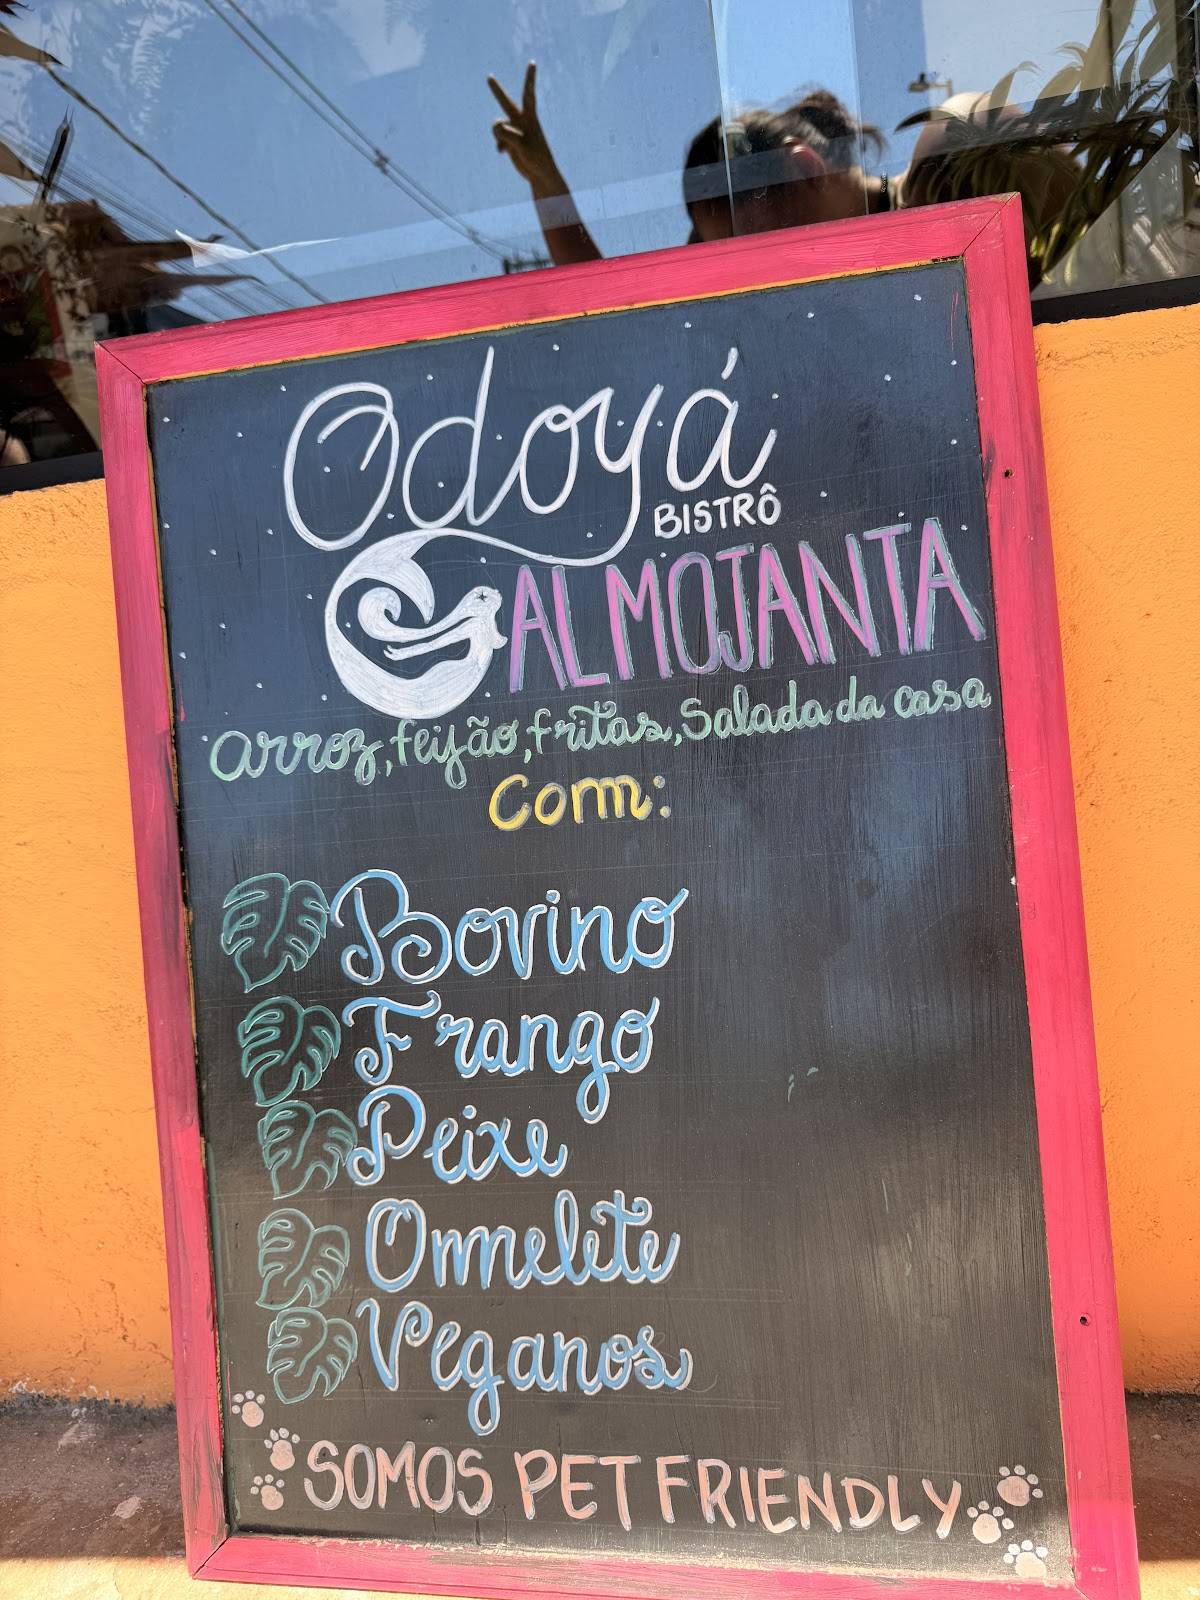 Odoyá
BISTRÔ
ALMOJANTA
arroz, feijão, fritas, Salada da casa
Com:
Bovino
Frango
Peixe
Omelete
Veganos
SOMOS PET FRIENDLY